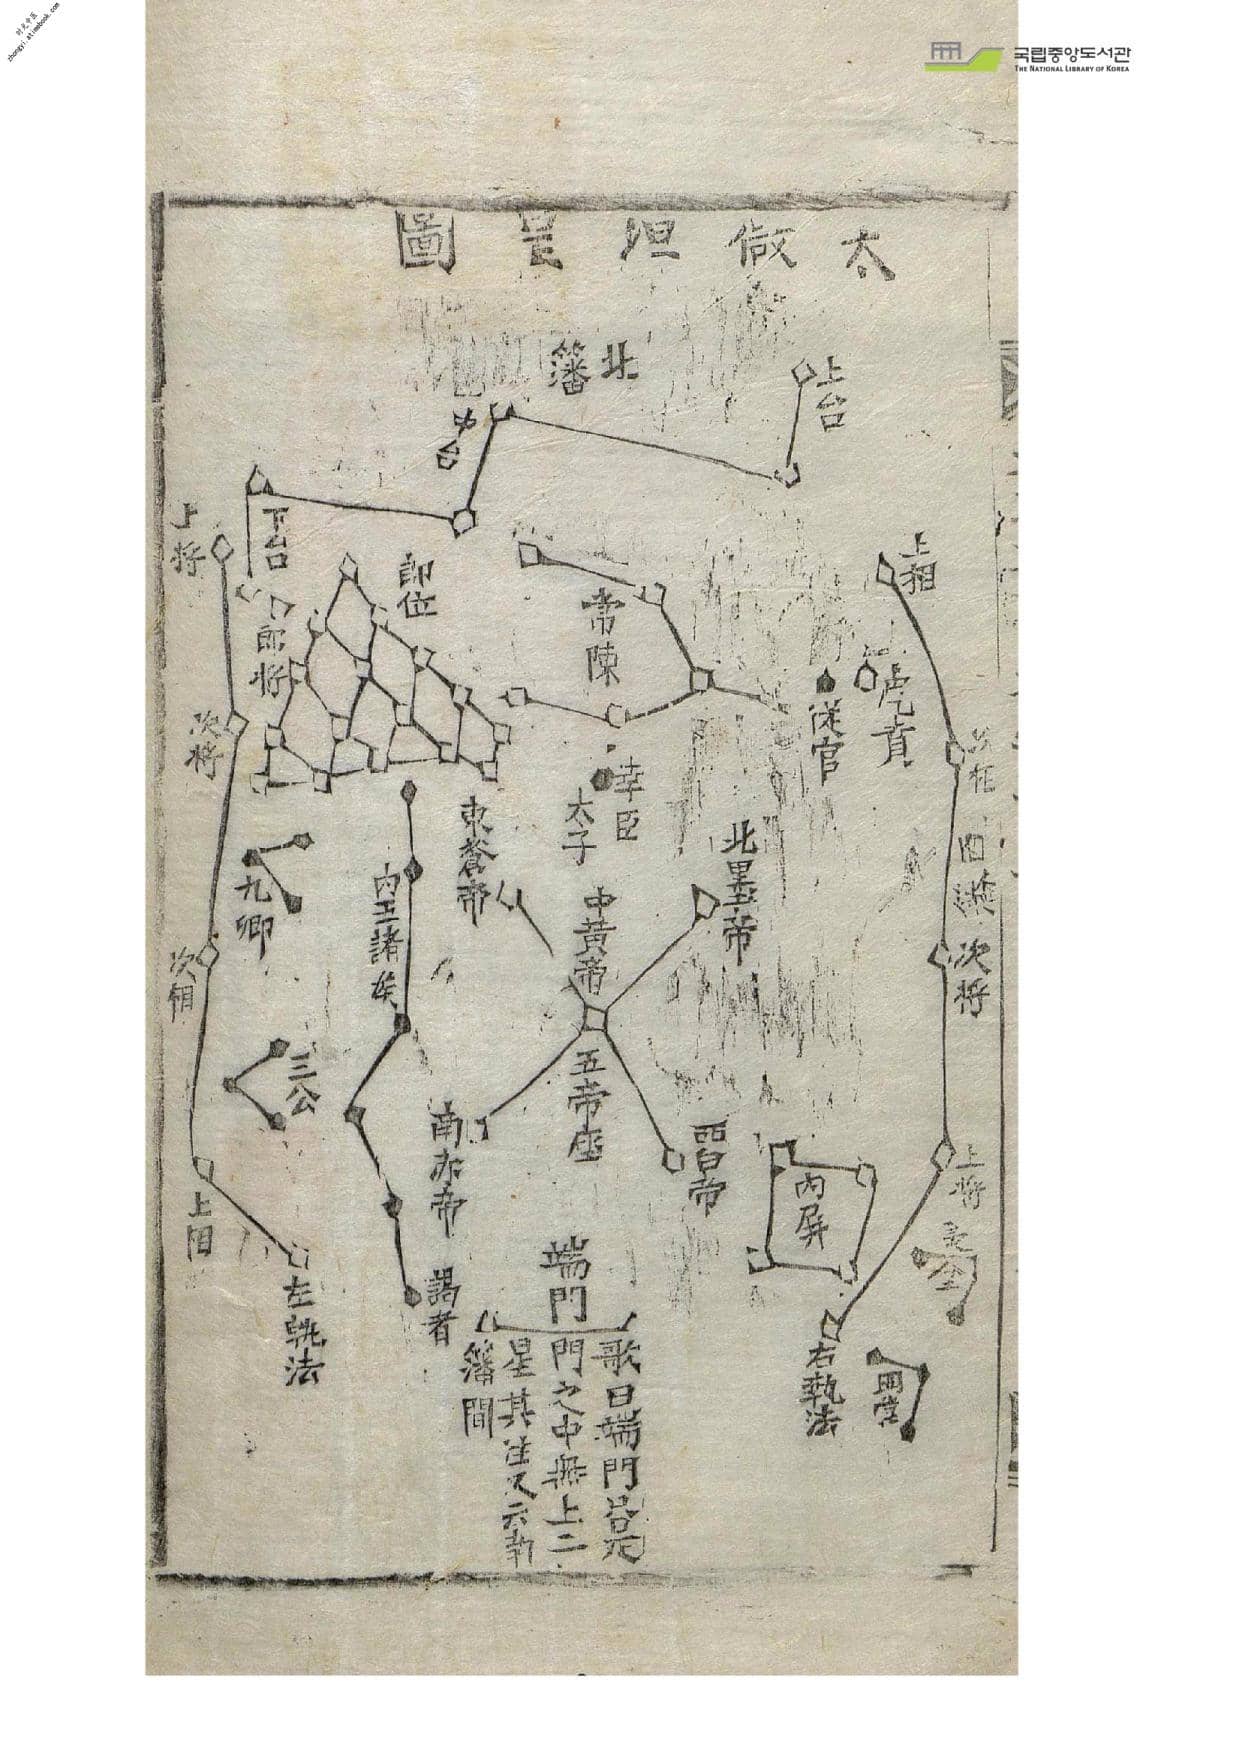 时光中医
zhongyi.atimebook.com
국립중앙도서관
THE NATIONAL LIBRARY OF KOREA
太微垣星圖
北
籓
上台
中台
下台
上相
上将
郎位
郎将
常陳
虎賁
従官
次将
次相
幸臣
太子
北黒帝
東蒼帝
九卿
内五諸侯
中黄帝
次将
次相
三公
五帝座
上将
西白帝
南赤帝
内屏
上相
端門
謁者
左執法
右執法
明堂
歌曰端門
門之中無上二
星其注又云執
籓間